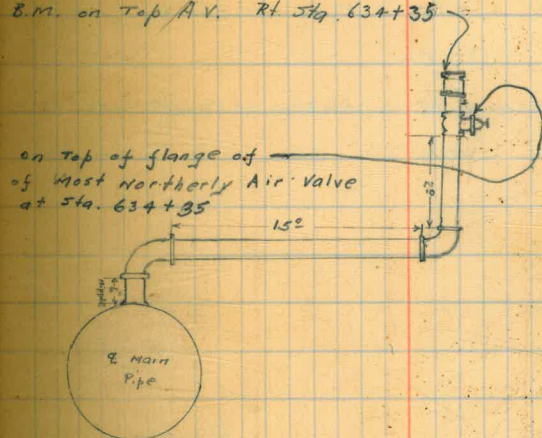 B.M. on Top A.V. Rt Sta. 634+35
on Top of flange of
of Most Northerly Air Valve
at Sta. 634+35
15º
2º
℄ Main
Pipe